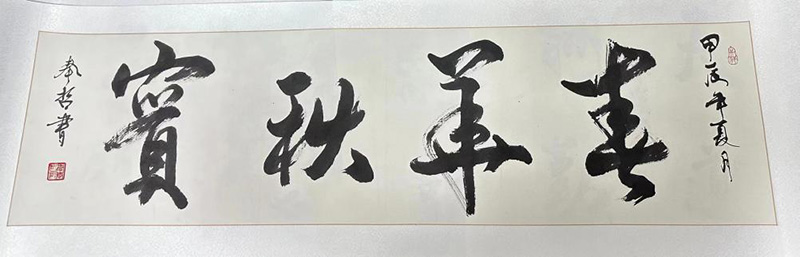 甲辰年夏月
春華秋實
哲書